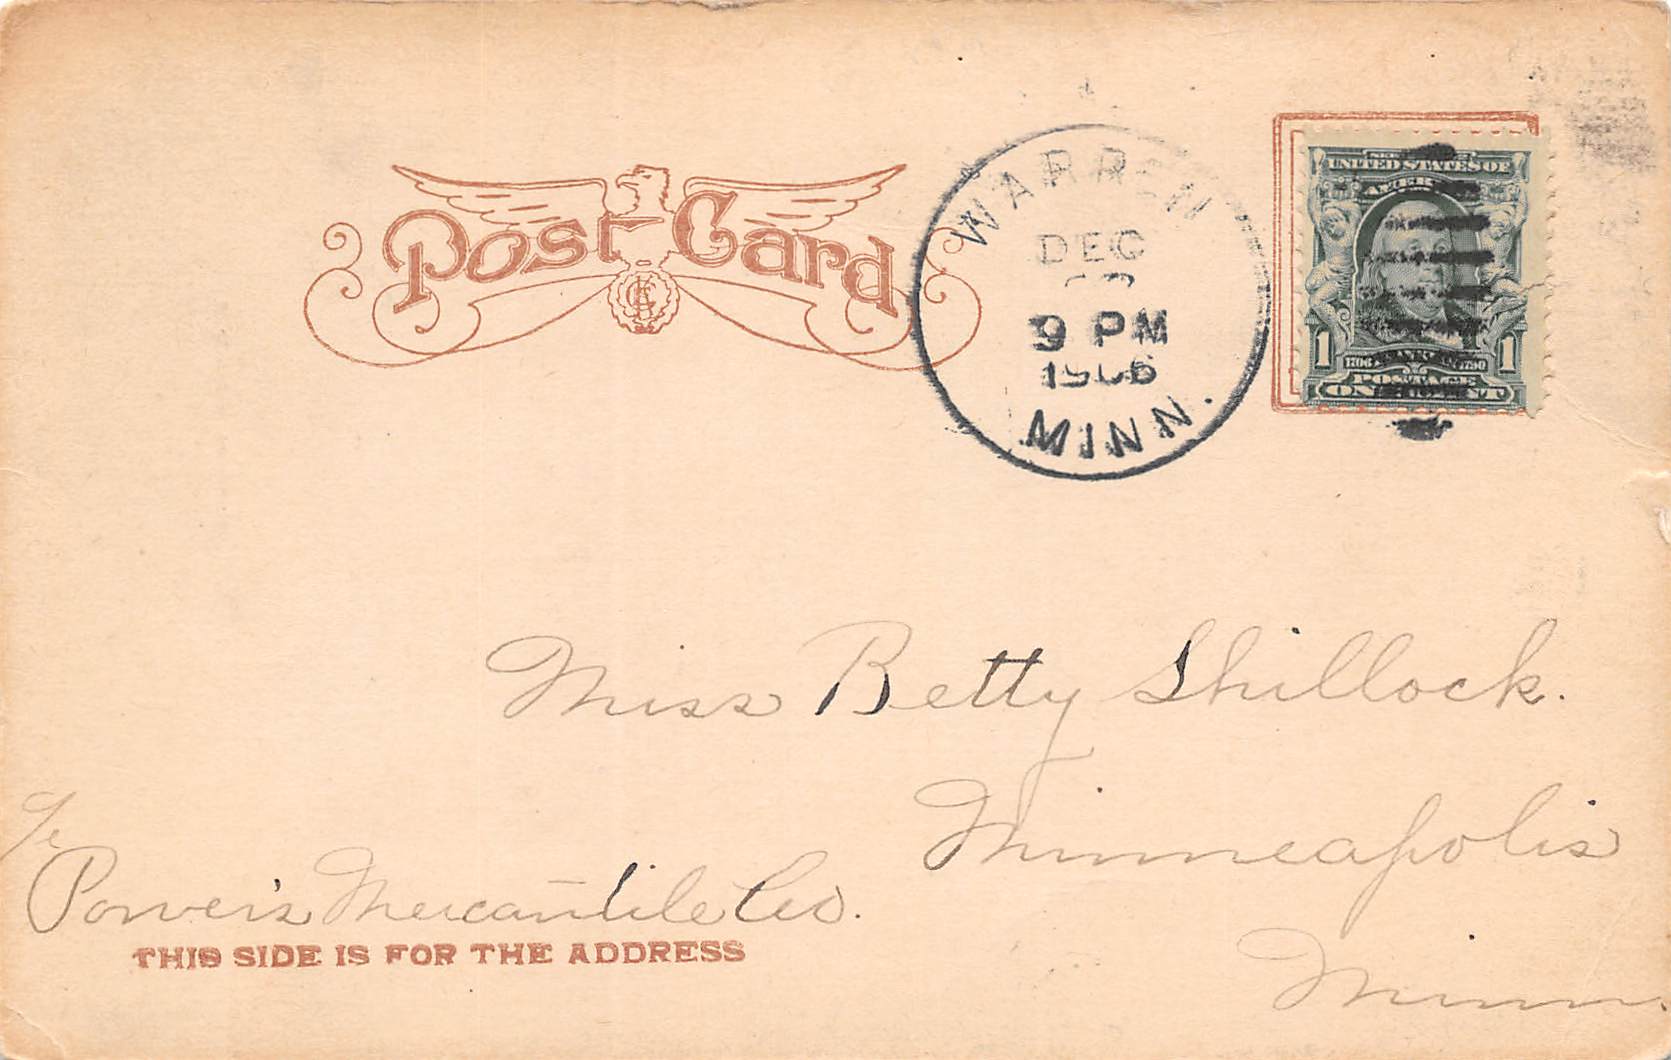 Post Card
WARREN
DEC
9 PM
1906
MINN.
UNITED STATES OF
1 1706 1790 1
POSTAGE
ONE CENT
Miss Betty Shillock.
Minneapolis
Minn.
c/o
Power's Mercantile Co.
THIS SIDE IS FOR THE ADDRESS